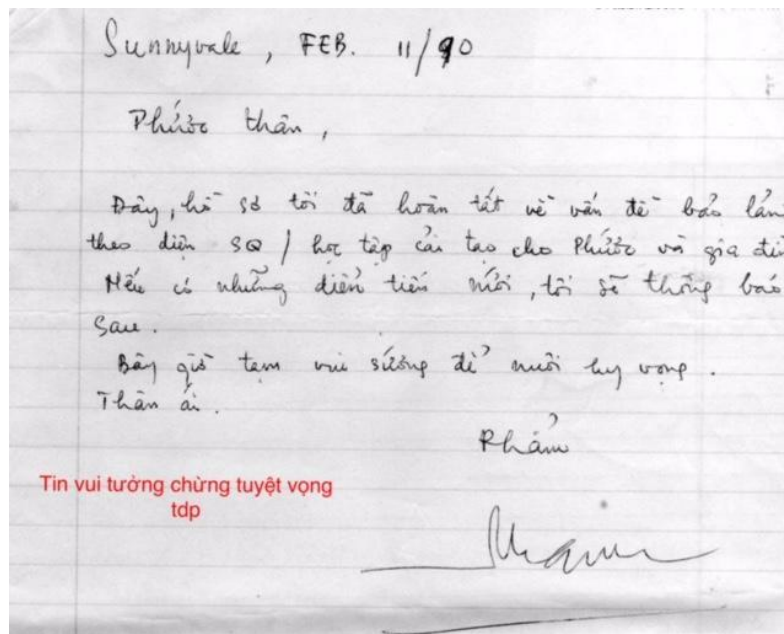 Sunnyvale, FEB. 11/90
Phước thân,
Đây, hồ sơ tôi đã hoàn tất về vấn đề bảo lãn
theo diện SQ / học tập cải tạo cho Phước và gia đì
Nếu có những diễn tiến mới, tôi sẽ thông báo
sau.
Bây giờ tạm vui sướng để nuôi hy vọng.
Thân ái.
Phẩm
Tin vui tưởng chừng tuyệt vọng
tdp